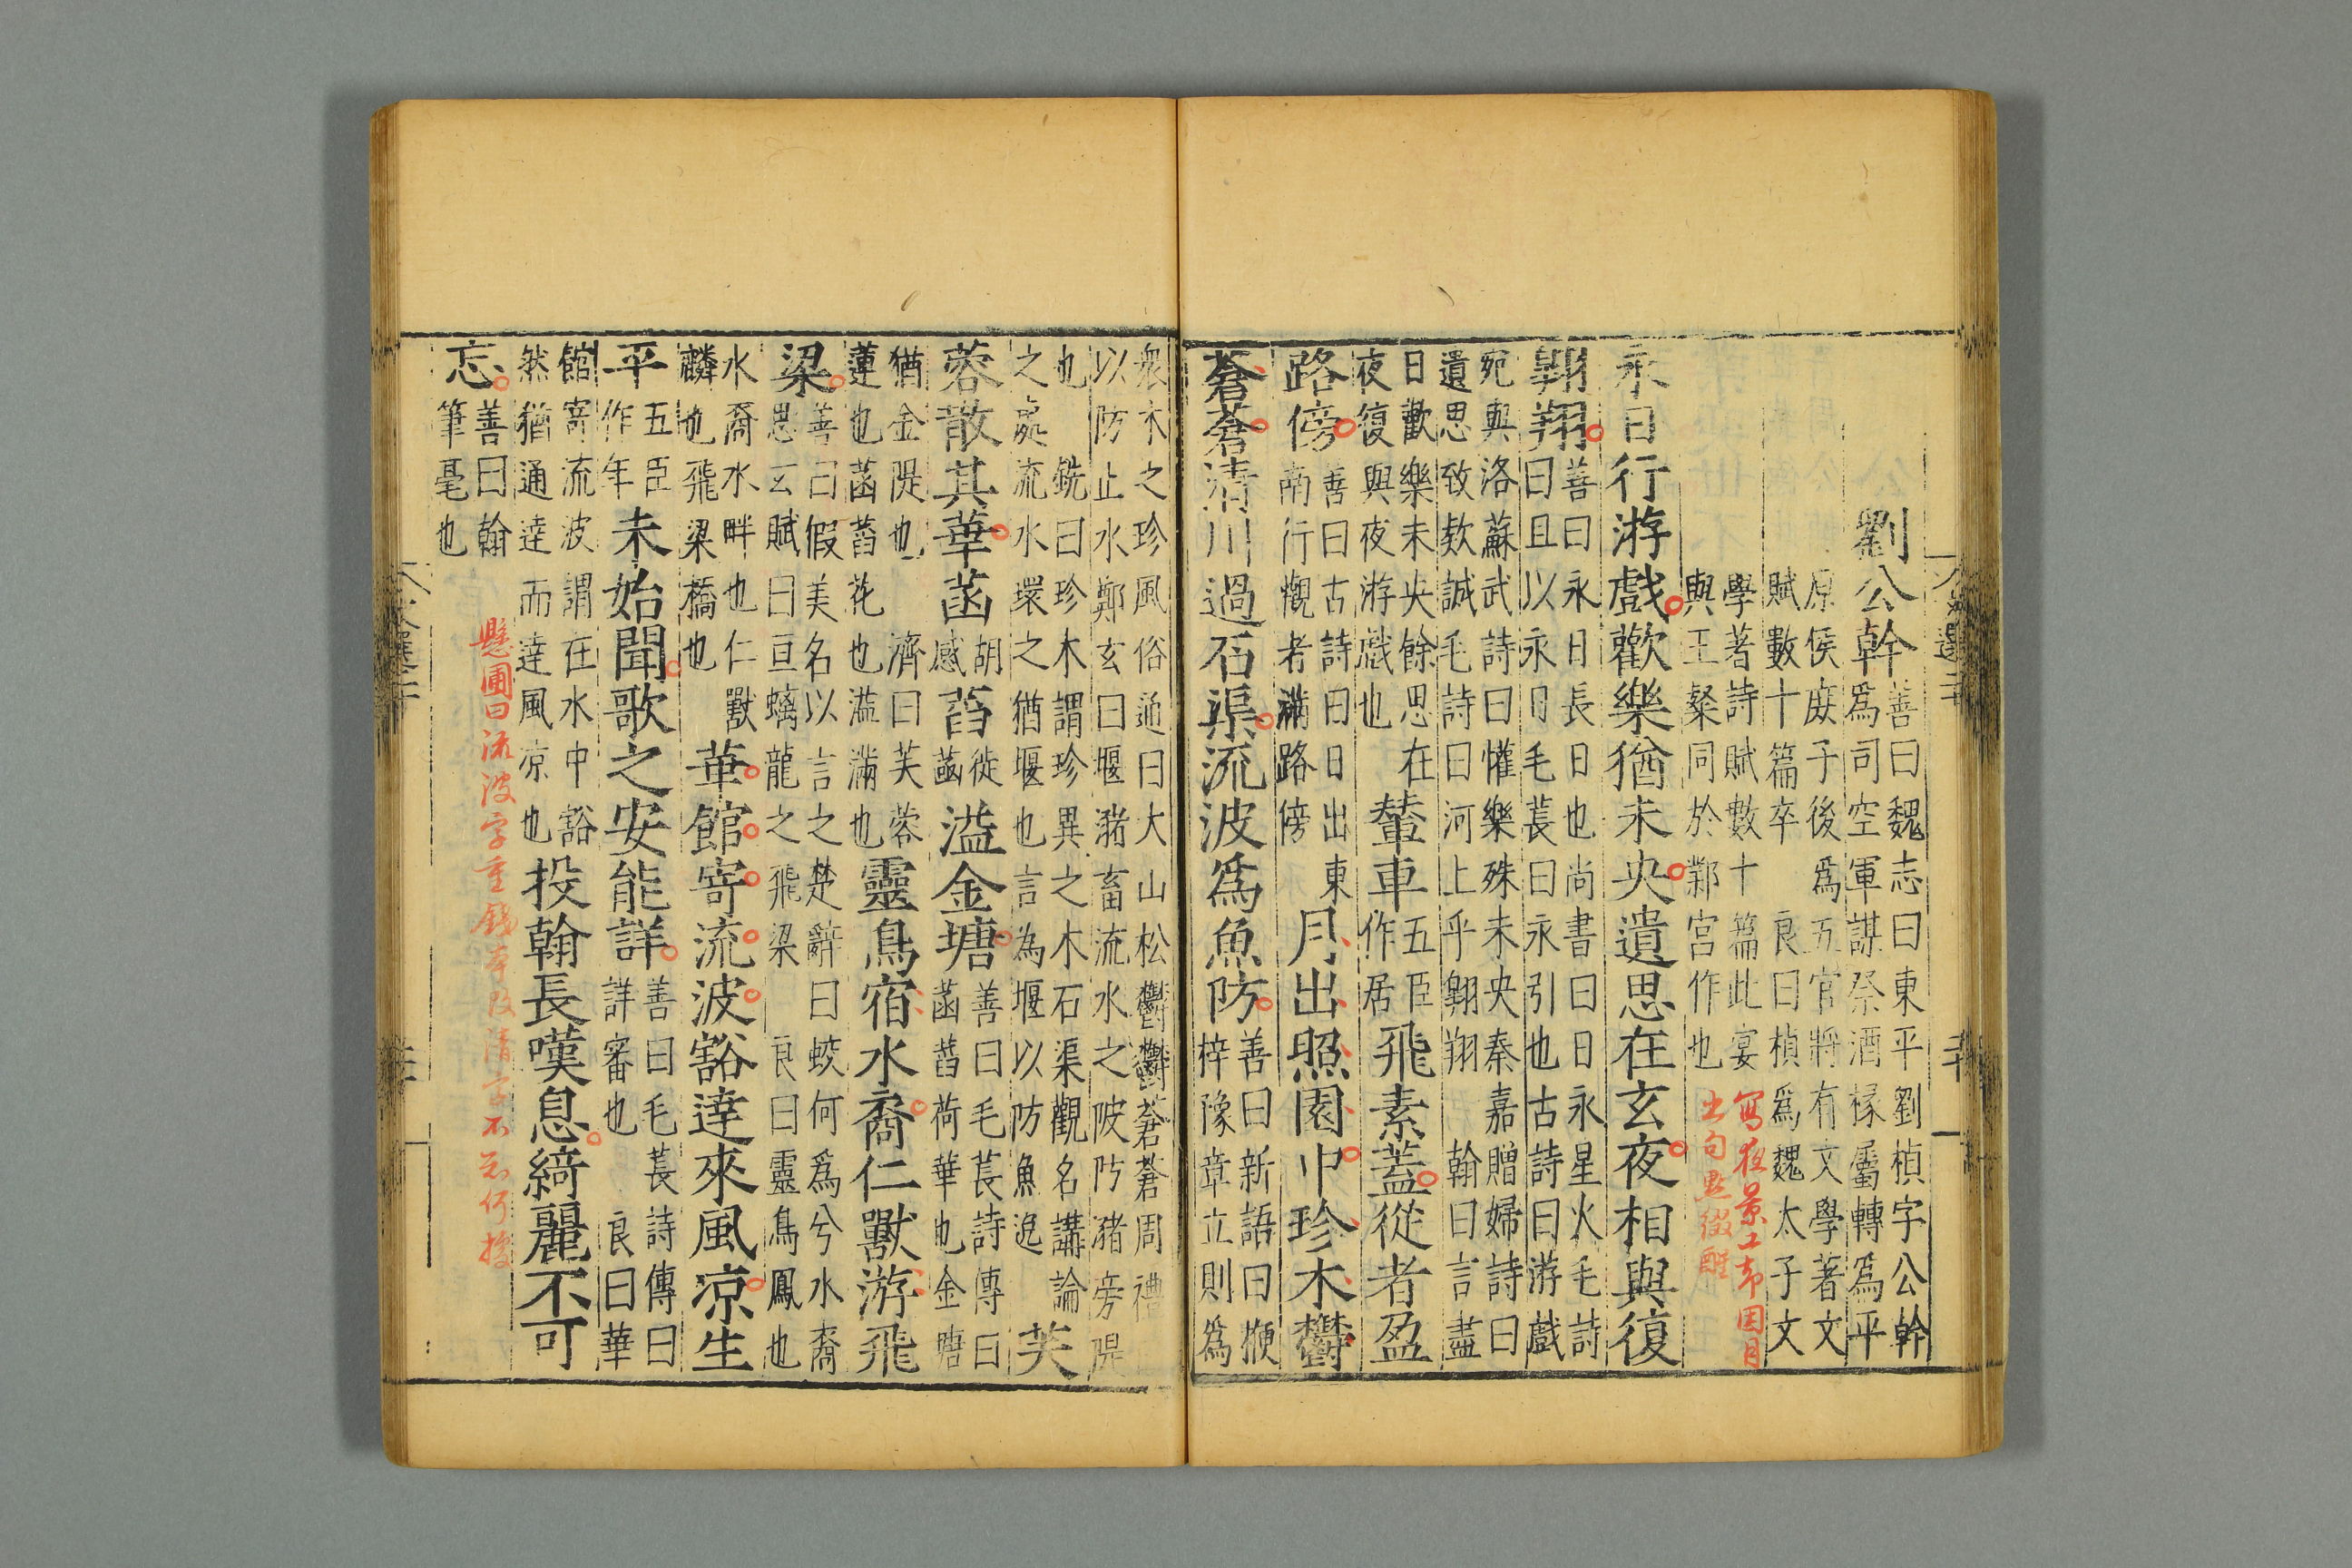 劉公幹 善曰魏志曰東平劉楨字公幹
爲司空軍謀祭酒掾屬轉爲平
原侯庻子後爲五官將有文學著文
賦數十篇卒 良曰楨爲魏太子文
學著詩賦數十篇此宴
與王粲同於鄴宮作也
寫夜景工卽因月
出句點綴
永日行游戲歡樂猶未央遺思在玄夜相與復
翺翔 善曰永日長日也尚書曰日永星火毛詩
曰且以永日毛萇曰永引也古詩曰游戲
宛與洛蘇武詩曰懽樂殊未央秦嘉贈婦詩曰
遺思致款誠毛詩曰河上乎翺翔 翰曰言盡
日歡樂未央餘思在
夜復與夜游戲也
輦車 五臣
作居
飛素蓋從者盈
路傍 善曰古詩曰日出東
南行觀者滿路傍
月出照園中珍木鬱
蒼蒼清川過石渠流波爲魚防 善曰新語曰楩
梓豫章立則爲
衆木之珍風俗通曰大山松鬱鬱蒼蒼周禮
以防止水鄭玄曰堰豬畜流水之陂防豬旁隄
也 銑曰珍木謂珍異之木石渠觀名講論
之處流水環之猶堰也言為堰以防魚逸
芙
蓉散其華菡 胡
感
萏 徙
菡
溢金塘 善曰毛萇詩傳曰
菡萏荷華也金塘
猶金隄也 濟曰芙蓉
蓮也菡萏花也溢滿也
靈鳥宿水裔仁獸游飛
梁 善曰假美名以言之楚辭曰蛟何爲兮水裔
思玄賦曰亘螭龍之飛梁 良曰靈鳥鳳也
水裔水畔也仁獸
麟也飛梁橋也
華館寄流波豁達來風凉生
平 五臣
作年
未始聞歌之安能詳 善曰毛萇詩傳曰
詳審也 良曰華
館寄流波謂在水中豁
然猶通達而達風凉也
投翰長嘆息綺麗不可
忘 善曰翰
筆毫也
懸圃曰流波字重錢本改清字不知何據